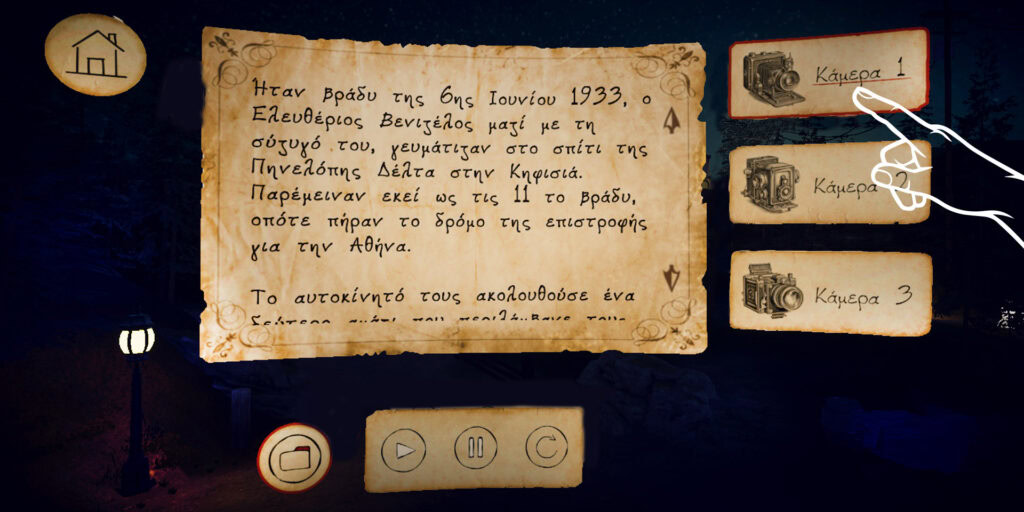 Ήταν βράδυ της 6ης Ιουνίου 1933, ο
Ελευθέριος Βενιζέλος μαζί με τη
σύζυγό του, γευμάτιζαν στο σπίτι της
Πηνελόπης Δέλτα στην Κηφισιά.
Παρέμειναν εκεί ως τις 11 το βράδυ,
οπότε πήραν το δρόμο της επιστροφής
για την Αθήνα.
Το αυτοκίνητό τους ακολουθούσε ένα
Κάμερα 1
Κάμερα 2
Κάμερα 3